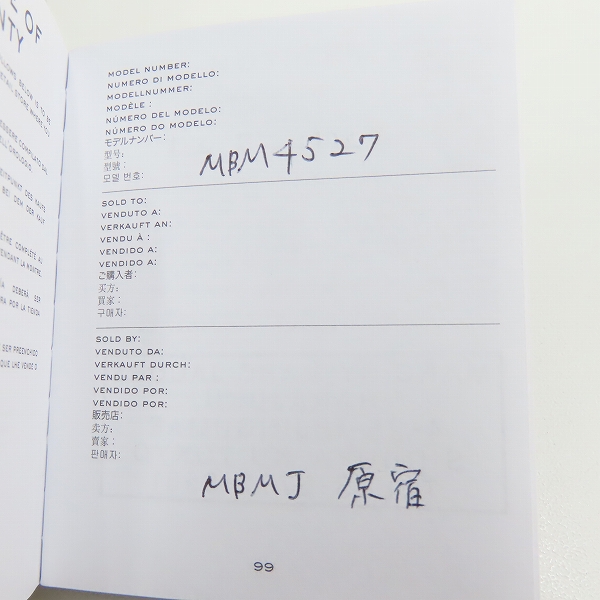 L OF
NTY
MODEL NUMBER:
NUMERO DI MODELLO:
MODELLNUMMER:
MODÈLE :
NÚMERO DEL MODELO:
NÚMERO DO MODELO:
モデルナンバー:
型号:
型號:
모델 번호:
MBM4527
SOLD TO:
VENDUTO A:
VERKAUFT AN:
VENDU À :
VENDIDO A:
VENDIDO A:
ご購入者:
买方:
買家:
구매자:
SOLD BY:
VENDUTO DA:
VERKAUFT DURCH:
VENDU PAR :
VENDIDO POR:
VENDIDO POR:
販売店:
卖方:
賣家:
판매자:
MBMJ 原宿
99